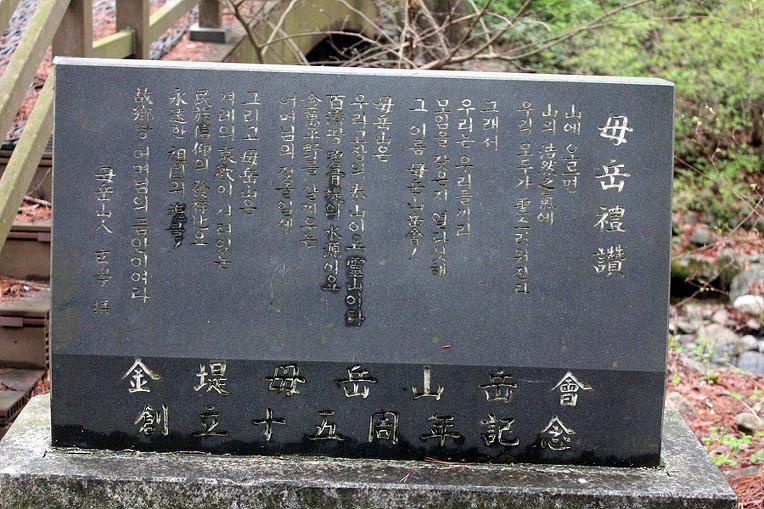 母岳禮讚
山에 오르면
山의 浩然之氣에
우리 모두가
그래서
우리는 우리들끼리
모임을 갖은지 열다섯해
그 이름 母岳山岳會!
母岳山은
우리고장의 泰山이요 靈山이라
百濟땅 碧骨堤의 水源이요
金萬平野를 살찌우는
어머님의 젖줄일세
그리고 母岳山은
겨레의 哀歡이 서려있는
民族信仰의 發祥地요
永遠한 祖國의
故鄕땅 어머님의 품안이여라
母岳山人 玄學 撰
金堤母岳山岳會
創立十五周年記念